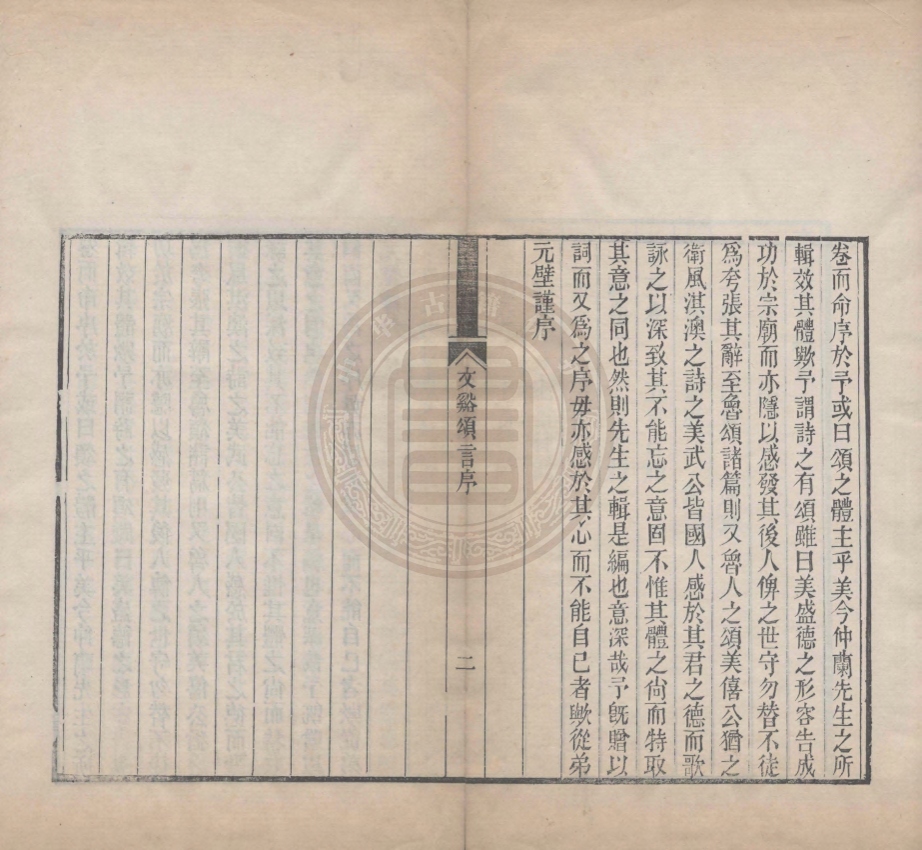 卷而命序於予或曰頌之體主乎美今仲蘭先生之所
輯效其體歟予謂詩之有頌雖曰美盛德之形容告成
功於宗廟而亦隱以感發其後人俾之世守勿替不徒
爲夸張其辭至魯頌諸篇則又魯人之頌美僖公猶之
衛風淇澳之詩之美武公皆國人感於其君之德而歌
詠之以深致其不能忘之意固不惟其體之尙而特取
其意之同也然則先生之輯是編也意深哉予旣贈以
詞而又爲之序毋亦感於其心而不能自已者歟從弟
元壁謹序
文谿頌言序
二